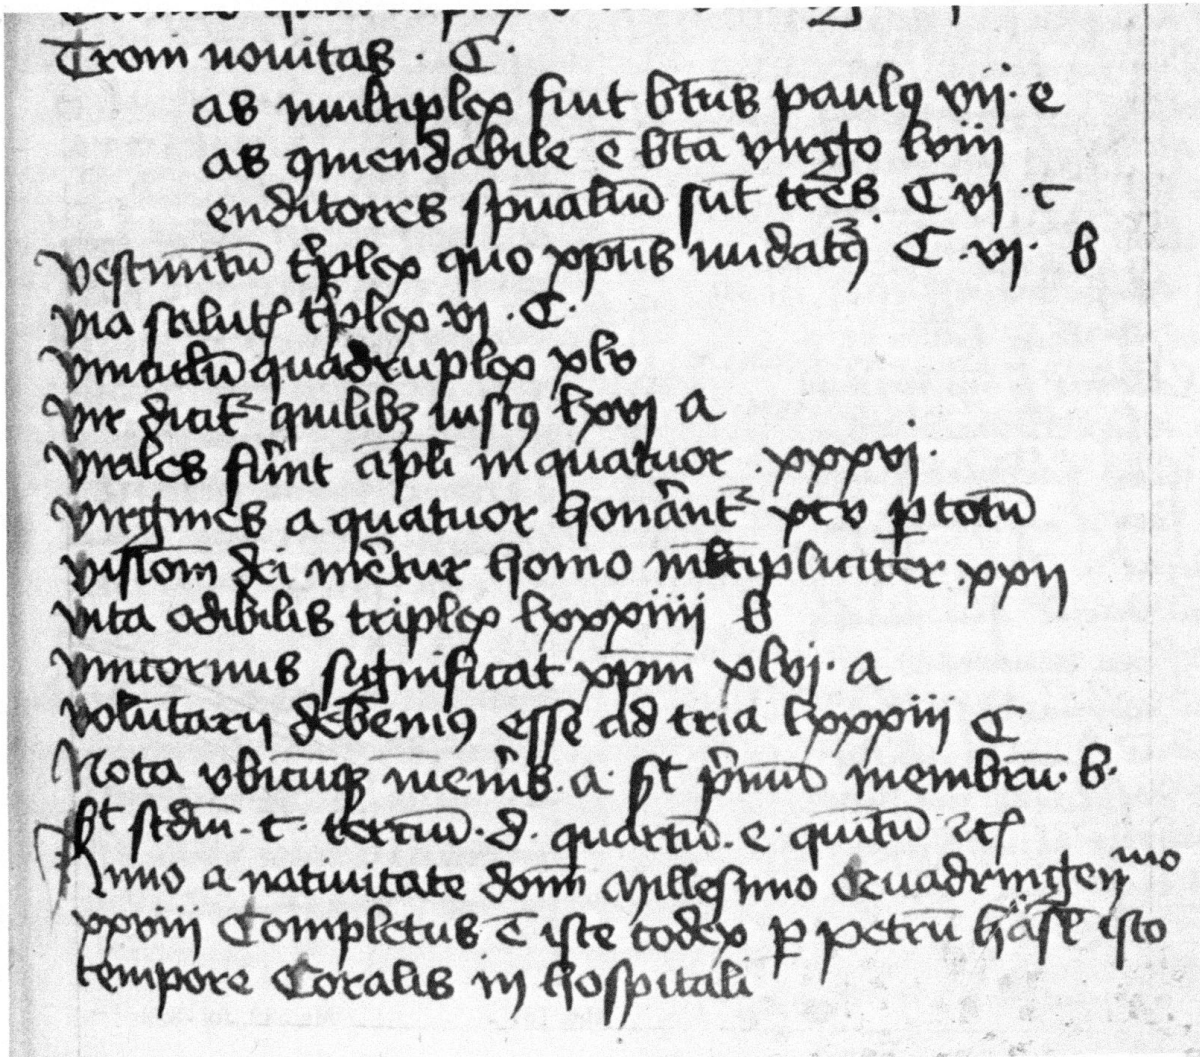 Trom nouitas . C.
as multiplex fiut btūs paulꝰ vij. e
as ꝯmendabile ē btā virgo lviij
enditores spūaliū sūt trēs C vj . c
vestimītū tͥplex quo xpūs nudatꝰ C . vj . b
via salutꝭ tͥplex vj . C.
vinculū quadruplex xlv
vir dicit᷑ quilibꝫ iustꝰ lxvj a
virgines a quatuor honãnt᷑ xcv ꝑ totū
visiom dei met̄ur homo mltipliciter xxij
vita odibilis triplex lxxxiiij b
vnicornus significat xpm̄ xlvj . a
volūtarij debemꝰ esse ad tria lxxxiij C
Nota vbicūqꝫ inuen̄is . a . st pͥmū membrū . b .
st scdm̄ . c . terciū . d . quartū . e . quītū ⁊cꝭ
Anno a natiuitate domī Millesimo Quadringenmo
xxviij Completus ē iste codex ꝑ petrū isto
tempore Coralis in hospitali